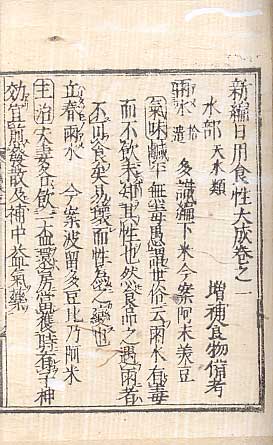 新編日用食性大成卷之一
増補食物備考
水部 天水類
雨水 拾遺 多識編下米今案阿末美豆
氣味鹹平無毒愚謂世俗云雨水有毒
而不飲未知其性也然食品之遇雨者
不可食矣易壞而性為之變也
立春雨水 今案波留多豆比乃阿米
主治夫妻各飲一盃還房當獲時有子神
效宜煎發散及補中益氣藥